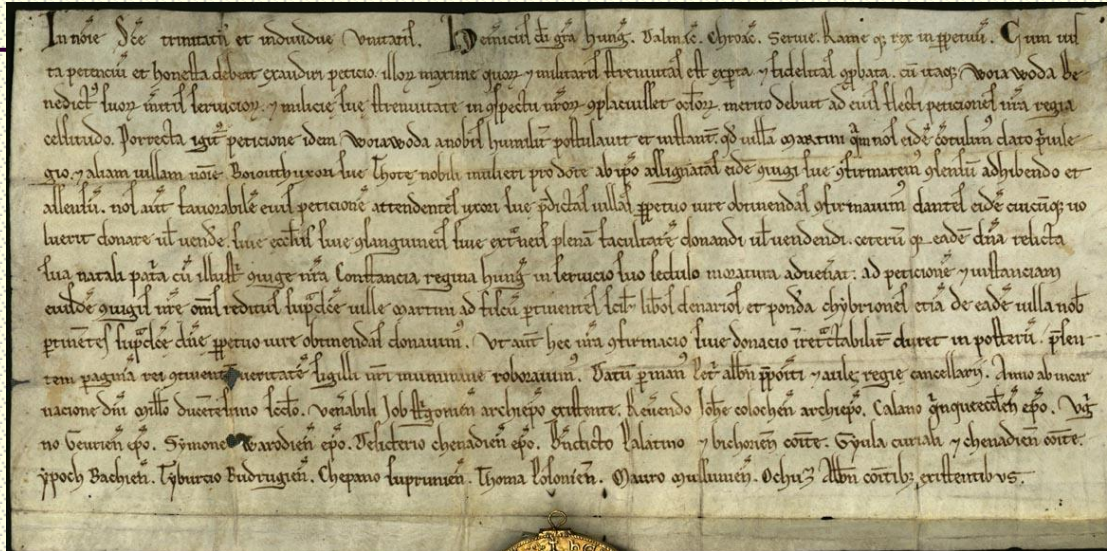 In noīe Sc̄e trinitatis et indiuidue Vnitatis. Heinricus di gr̄a hung̃. Dalmac̃. Chroac̃. Seruie. Rame q̨ rex in ꝑpetuū. Cum ius
ta petenciū et honesta debeat exaudiri peticio. illoꝝ maxime quoꝝ ⁊ militaris strenuitas est exꝑta ⁊ fidelitas ꝯprobata. cū itaq̨ Woiawoda be
nedict᷒ suoꝝ intuitu seruicioꝝ. ⁊ milicie sue strenuitate in ꝯspectu nr̄oꝝ ꝯplacuisset oc̄loꝝ. merito debuit ad eius flecti peticiones nr̄a regia
celsitudo. Porrecta igit᷑ peticione idem Woiawoda a nobis humilit᷑ postulauit et instant᷑. qd uillā martini q̄m nos eidē ꝯtulim᷒ dato p̄uile
gio. ⁊ aliam uillam noīe Boioith uxori sue Thote nobili mulieri pro dote ab ip̄o assignatas eidē ꝯiugi sue ꝯfirmarem᷒ ꝯsensū adhibendo et
assensū. nos aūt fauorabilē eius peticionē attendentes uxori sue p̄dictas uillas ꝑpetuo iure obtinendas ꝯfirmauim᷒ dantes eidē cuicūq̨ uo
luerit donare ul̄ vend̄e. siue ecclīis siue ꝯsanguineis siue ext̄neis plenā facultatē donandi ul̄ uendendi. ceterū q̨ eadē dn̄a relicta
sua natali patīa cū illustri ꝯiuge nr̄a Constancia regina hung̃ in seruicio suo sedulo moratura aduen̄at: ad peticionē ⁊ instanciam
eiusdē ꝯiugis nr̄e om̄s reditus sup̄dc̄e uille martini ad fiscū ꝑtinentes scil̄. lib̄os denarios et pond̄a chybriones etiā de eadē uilla nob̄
ꝑtinentes sup̄dc̄e dn̄e ꝑpetuo iure obtinendas donauim᷒. Vt aūt hec nr̄a ꝯfirmacio siue donacio ir̄etr̄actabilit᷑ duret in posterū. p̄sen-
tem paginā rei ꝯtinentē ueritatē sigilli nr̄i munimine roborauim᷒. Datū ꝑ man᷒ Pet̄ albn̄ p̄poiti ⁊ aule regie cancellarij. Anno ab incar
nacione dn̄i millo ducentesimo sc̄do. Ven̄abili Job strigonien̄ archiepō existente. Reu̅endo Joh̄e colochen̄ archiepō. Calano q̄nqueeccl̄en̄ epō. Vg̃
no Geurien̄ epō. Symone Warodien̄ epō. Desiderio chenadien̄ epō. Bn̄dicto Palatino ⁊ bichorien̄ coīte. Gyula curiali ⁊ chenadien̄ coīte.
ypoch Bachien̄. Tyburcio Budrugien̄. Chepano suprunien̄. Thoma Posonien̄. Mauro musunien̄. Ochuz Albn̄ coītib᷒ existentibus.